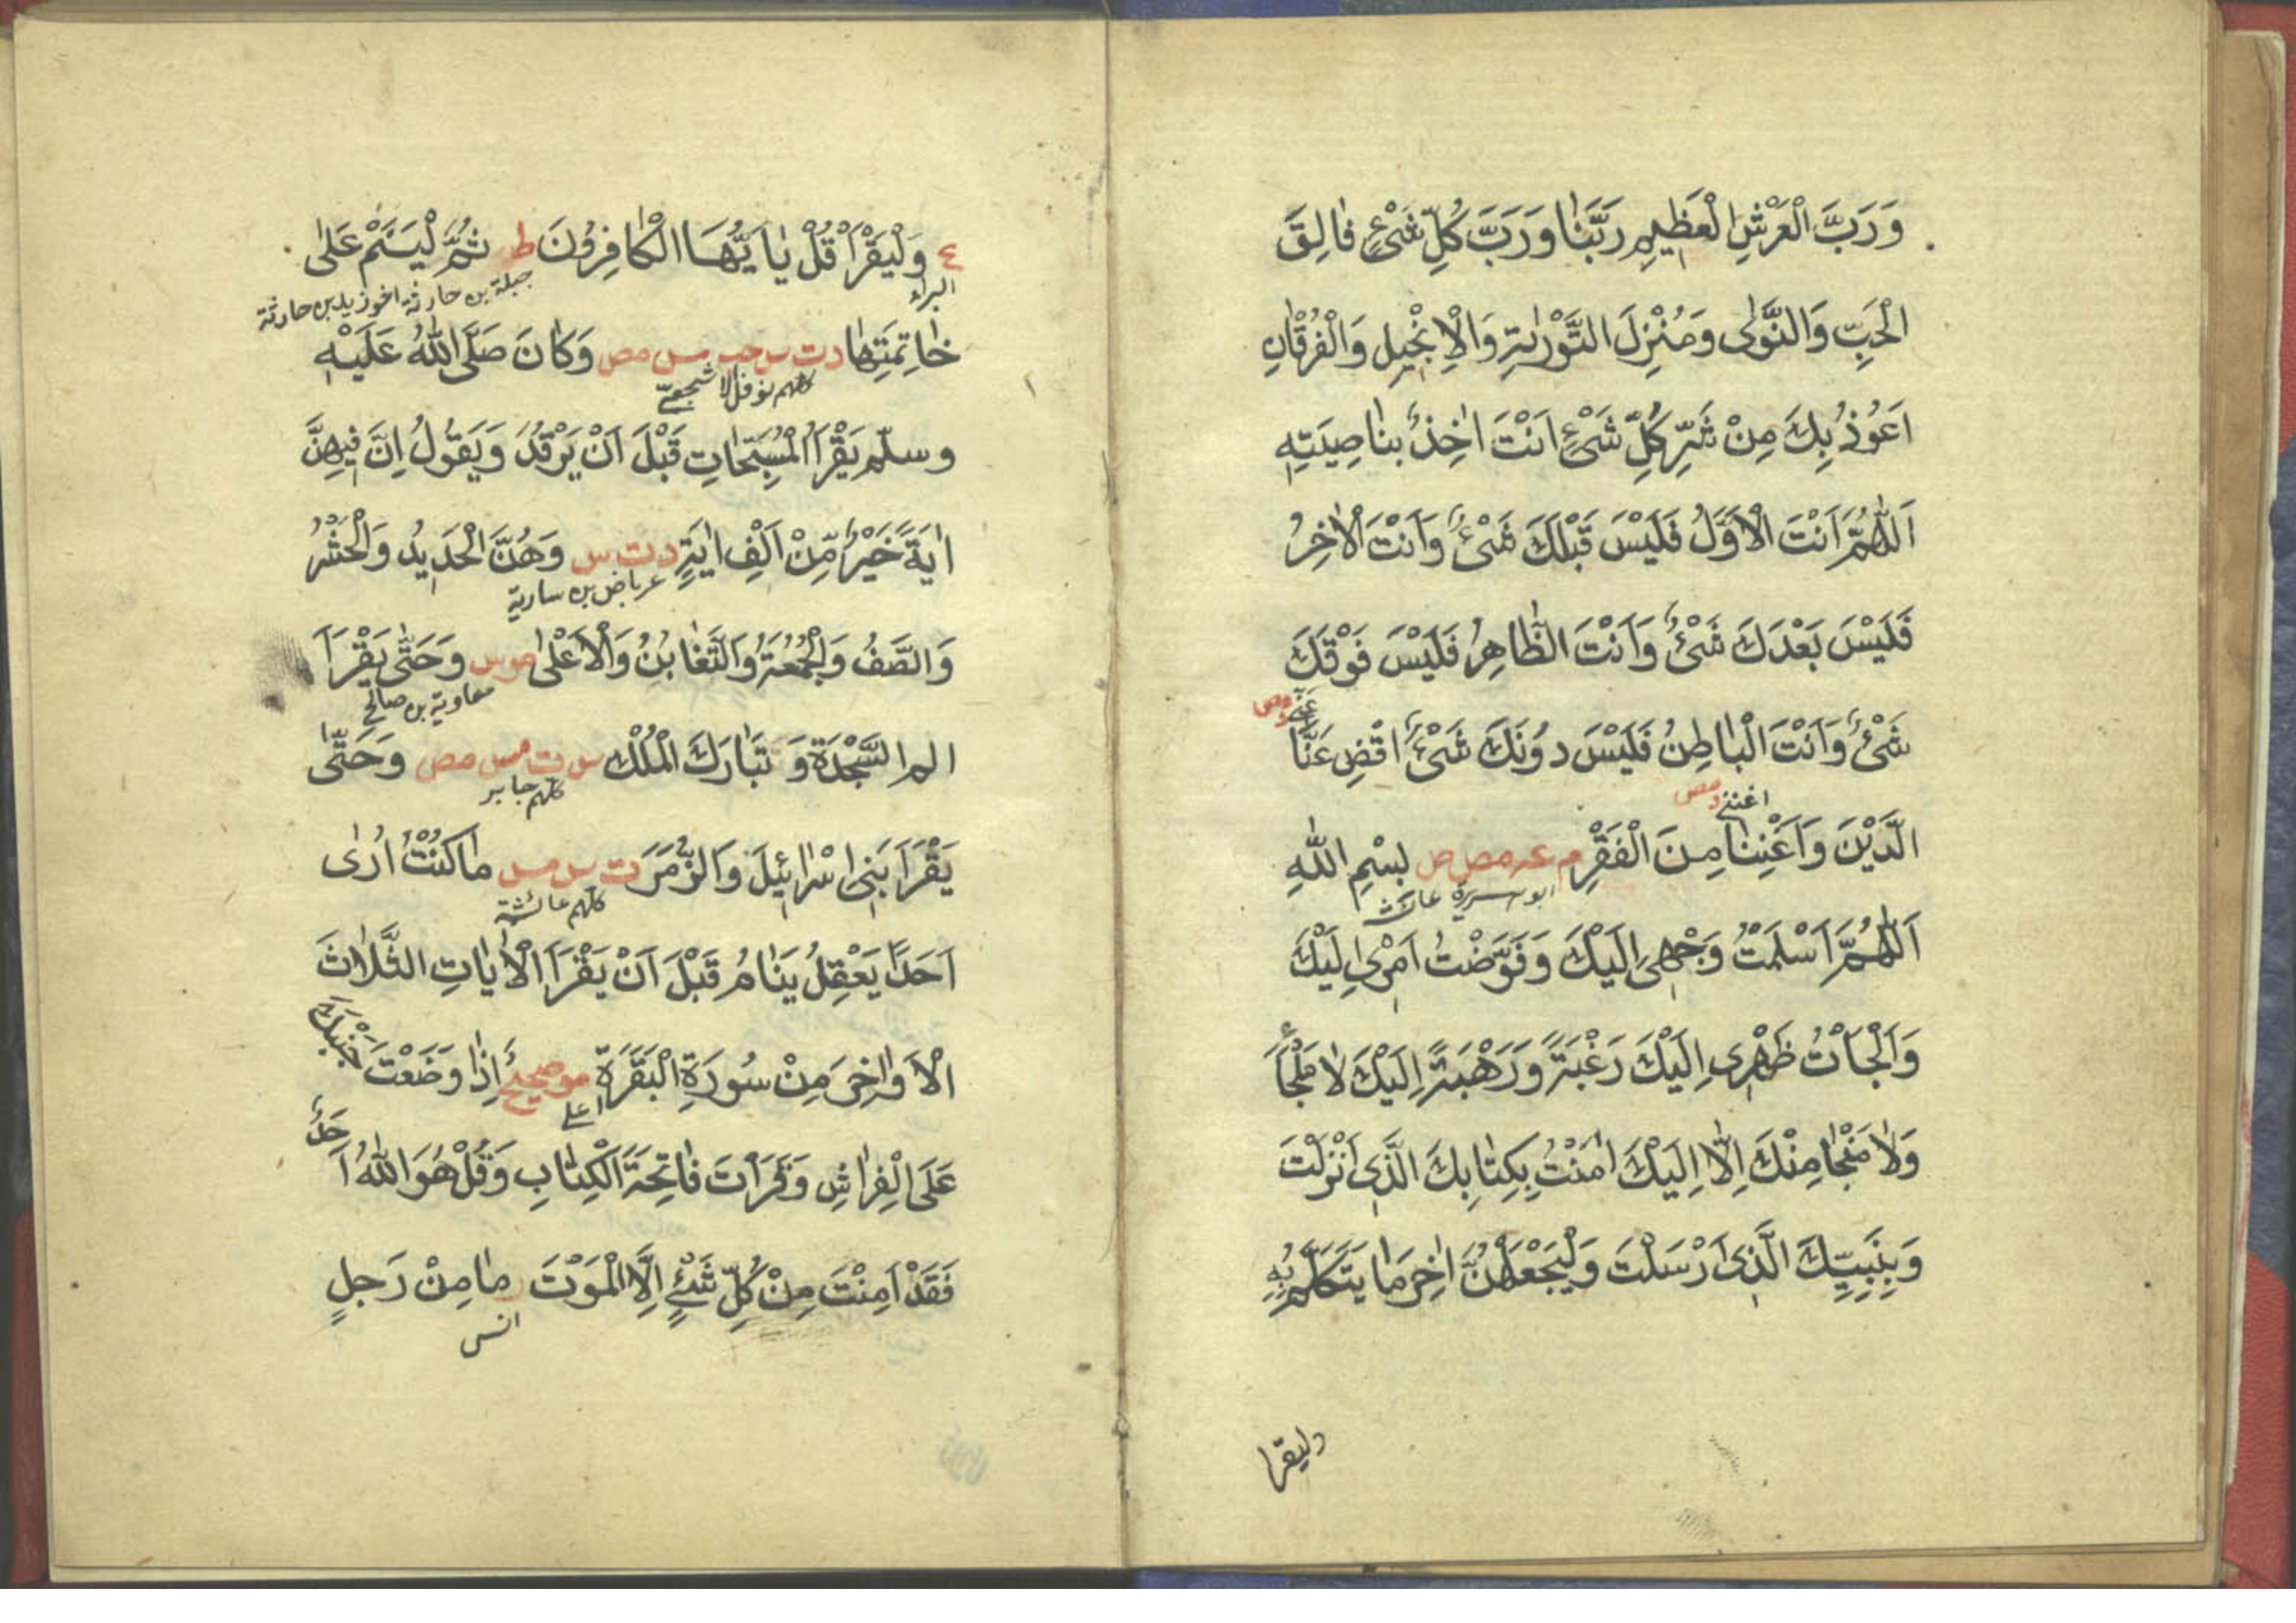 وَرَبَّ الْعَرْشِ الْعَظِيمِ رَبَّنَا وَرَبَّ كُلِّ شَيْءٍ فَالِقَ
الْحَبِّ وَالنَّوٰى وَمُنْزِلَ التَّوْرٰيةِ وَالْاِنْجِيلِ وَالْفُرْقَانِ
اَعُوذُ بِكَ مِنْ شَرِّ كُلِّ شَيْءٍ اَنْتَ اٰخِذٌ بِنَاصِيَتِهِ
اَللّٰهُمَّ اَنْتَ الْاَوَّلُ فَلَيْسَ قَبْلَكَ شَيْءٌ وَاَنْتَ الْاٰخِرُ
فَلَيْسَ بَعْدَكَ شَيْءٌ وَاَنْتَ الظَّاهِرُ فَلَيْسَ فَوْقَكَ
عَنِّي د مص
شَيْءٌ وَاَنْتَ الْبَاطِنُ فَلَيْسَ دُونَكَ شَيْءٌ اقْضِ عَنَّا
اغننى د مص
الدَّيْنَ وَاَغْنِنَا مِنَ الْفَقْرِ م عه مص ص بِسْمِ اللّٰهِ
ابو هريرة عائشة
اَللّٰهُمَّ اَسْلَمْتُ وَجْهِيَ اِلَيْكَ وَفَوَّضْتُ اَمْرِي اِلَيْكَ
وَاَلْجَأْتُ ظَهْرِي اِلَيْكَ رَغْبَةً وَرَهْبَةً اِلَيْكَ لَا مَلْجَأَ
وَلَا مَنْجَا مِنْكَ اِلَّا اِلَيْكَ اٰمَنْتُ بِكِتَابِكَ الَّذِي اَنْزَلْتَ
وَبِنَبِيِّكَ الَّذِي اَرْسَلْتَ وَلْيَجْعَلْهُنَّ اٰخِرَ مَا يَتَكَلَّمُ بِهِ
وليقرا
ع وَلْيَقْرَأْ قُلْ يَا اَيُّهَا الْكَافِرُونَ ط ثُمَّ لْيَنَمْ عَلٰى
البراء جبلة بن حارثة اخو زيد بن حارثة
خَاتِمَتِهَا د ت س حب مس مص وَكَانَ صَلَّى اللّٰهُ عَلَيْهِ
كلهم نوفل الاشجعي
وسلّم يَقْرَأُ الْمُسَبِّحَاتِ قَبْلَ اَنْ يَرْقُدَ وَيَقُولُ اِنَّ فِيهِنَّ
اٰيَةً خَيْرٌ مِنْ اَلْفِ اٰيَةٍ د ت س وَهُنَّ الْحَدِيدُ وَالْحَشْرُ
عرباض بن سارية
وَالصَّفُ وَالْجُمُعَةُ وَالتَّغَابُنُ وَالْاَعْلٰى موس وَحَتّٰى يَقْرَأَ
معاوية بن صالح
الم السَّجْدَةَ وَتَبَارَكَ الْمُلْك س ت مس مص وَحَتّٰى
كلهم جابر
يَقْرَأَ بَنِي اِسْرَائِيلَ وَالزُّمَرَ ت س مس مَا كُنْتُ اُرٰى
كلهم عائشة
اَحَدًا يَعْقِلُ يَنَامُ قَبْلَ اَنْ يَقْرَأَ الْاٰيَاتِ الثَّلَاثَ
الْاَوَاخِرَ مِنْ سُورَةِ الْبَقَرَةِ مو صحيح اِذَا وَضَعْتَ جَنْبَكَ
علي
عَلَى الْفِرَاشِ وَقَرَأْتَ فَاتِحَةَ الْكِتَابِ وَقُلْ هُوَ اللّٰهُ اَحَدٌ
فَقَدْ اَمِنْتَ مِنْ كُلِّ شَيْءٍ اِلَّا الْمَوْتَ ر مَا مِنْ رَجُلٍ
انس